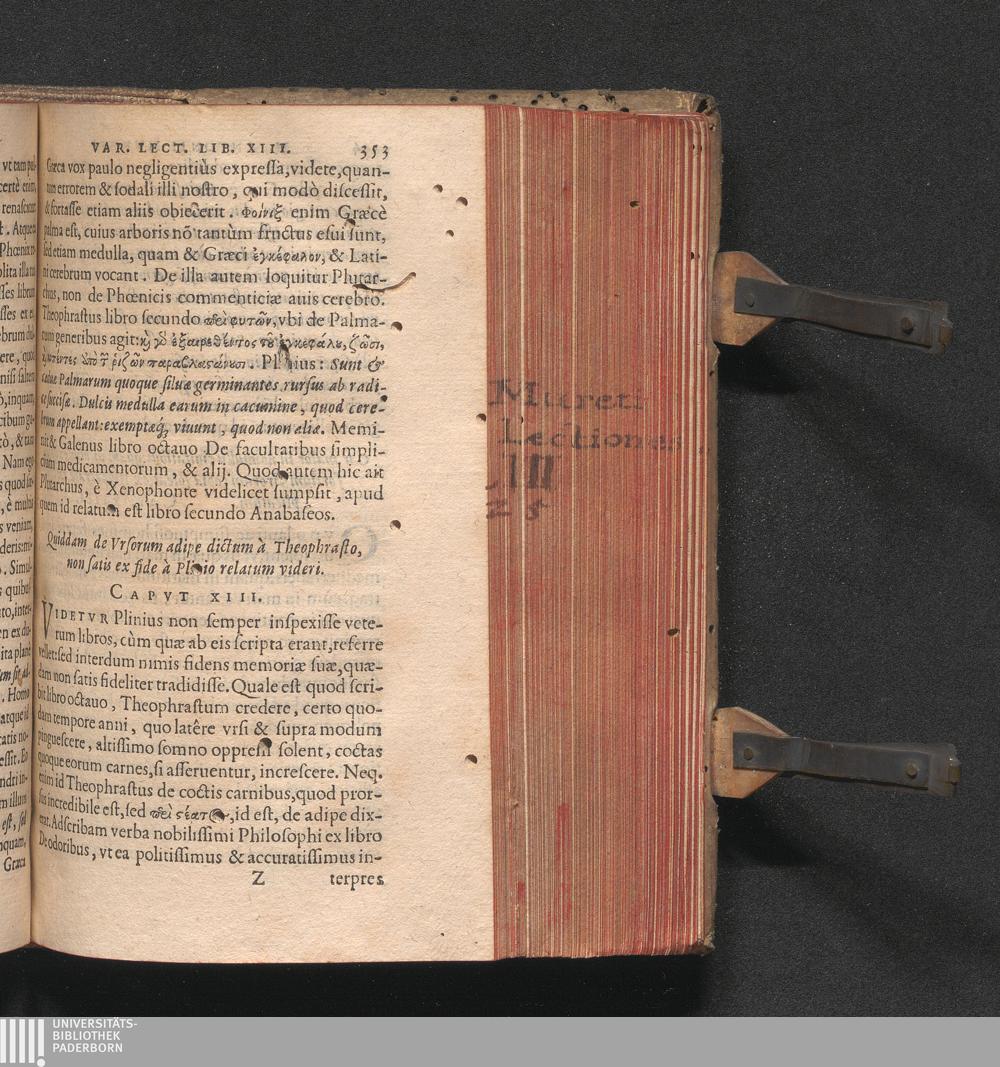 VAR. LECT. LIB. XIII. 353
Græca vox paulo negligentiùs expressa, videte, quan-
tum errorem & sodali illi nostro, qui modò discessit,
& fortasse etiam aliis obiecerit. Φοίνιξ enim Græcè
palma est, cuius arboris nõ tantùm fructus esui sunt,
sed etiam medulla, quam & Græci ἐγκέφαλον, & Lati-
ni cerebrum vocant. De illa autem loquitur Plutar-
chus, non de Phœnicis commenticiæ auis cerebro.
Theophrastus libro secundo περὶ φυτῶν, vbi de Palma-
rum generibus agit: καὶ γὸ ἐξαιρεθέντος τοῦ ἐγκεφάλου, ζῶσι,
ὑπὸ τ ῥιζῶν παραβλαστάνουσι. Plinius: Sunt &
cæduæ Palmarum quoque siluæ germinantes rursus ab radi-
ce succisæ. Dulcis medulla earum in cacumine, quod cere-
brum appellant: exemptaq́, viuunt, quod non aliæ. Memi-
nit & Galenus libro octauo De facultatibus simpli-
cium medicamentorum, & alij. Quod autem hic ait
Plutarchus, è Xenophonte videlicet sumpsit, apud
quem id relatum est libro secundo Anabaseos.
Quiddam de Vrsorum adipe dictum à Theophrasto,
non satis ex fide à Plinio relatum videri.
CAPVT XIII.
VIDETVR Plinius non semper inspexisse vete-
rum libros, cùm quæ ab eis scripta erant, referre
vellet: sed interdum nimis fidens memoriæ suæ, quæ-
dam non satis fideliter tradidisse. Quale est quod scri-
bit libro octauo, Theophrastum credere, certo quo-
dam tempore anni, quo latêre vrsi & supra modum
pinguescere, altissimo somno oppressi solent, coctas
quoque eorum carnes, si asseruentur, increscere. Neq.
enim id Theophrastus de coctis carnibus, quod pror-
sus incredibile est, sed περὶ στέατος, id est, de adipe dix-
erat. Adscribam verba nobilissimi Philosophi ex libro
De odoribus, vt ea politissimus & accuratissimus in-
Z terpres
Mureti
Lectiones
III
25
UNIVERSITÄTS-
BIBLIOTHEK
PADERBORN